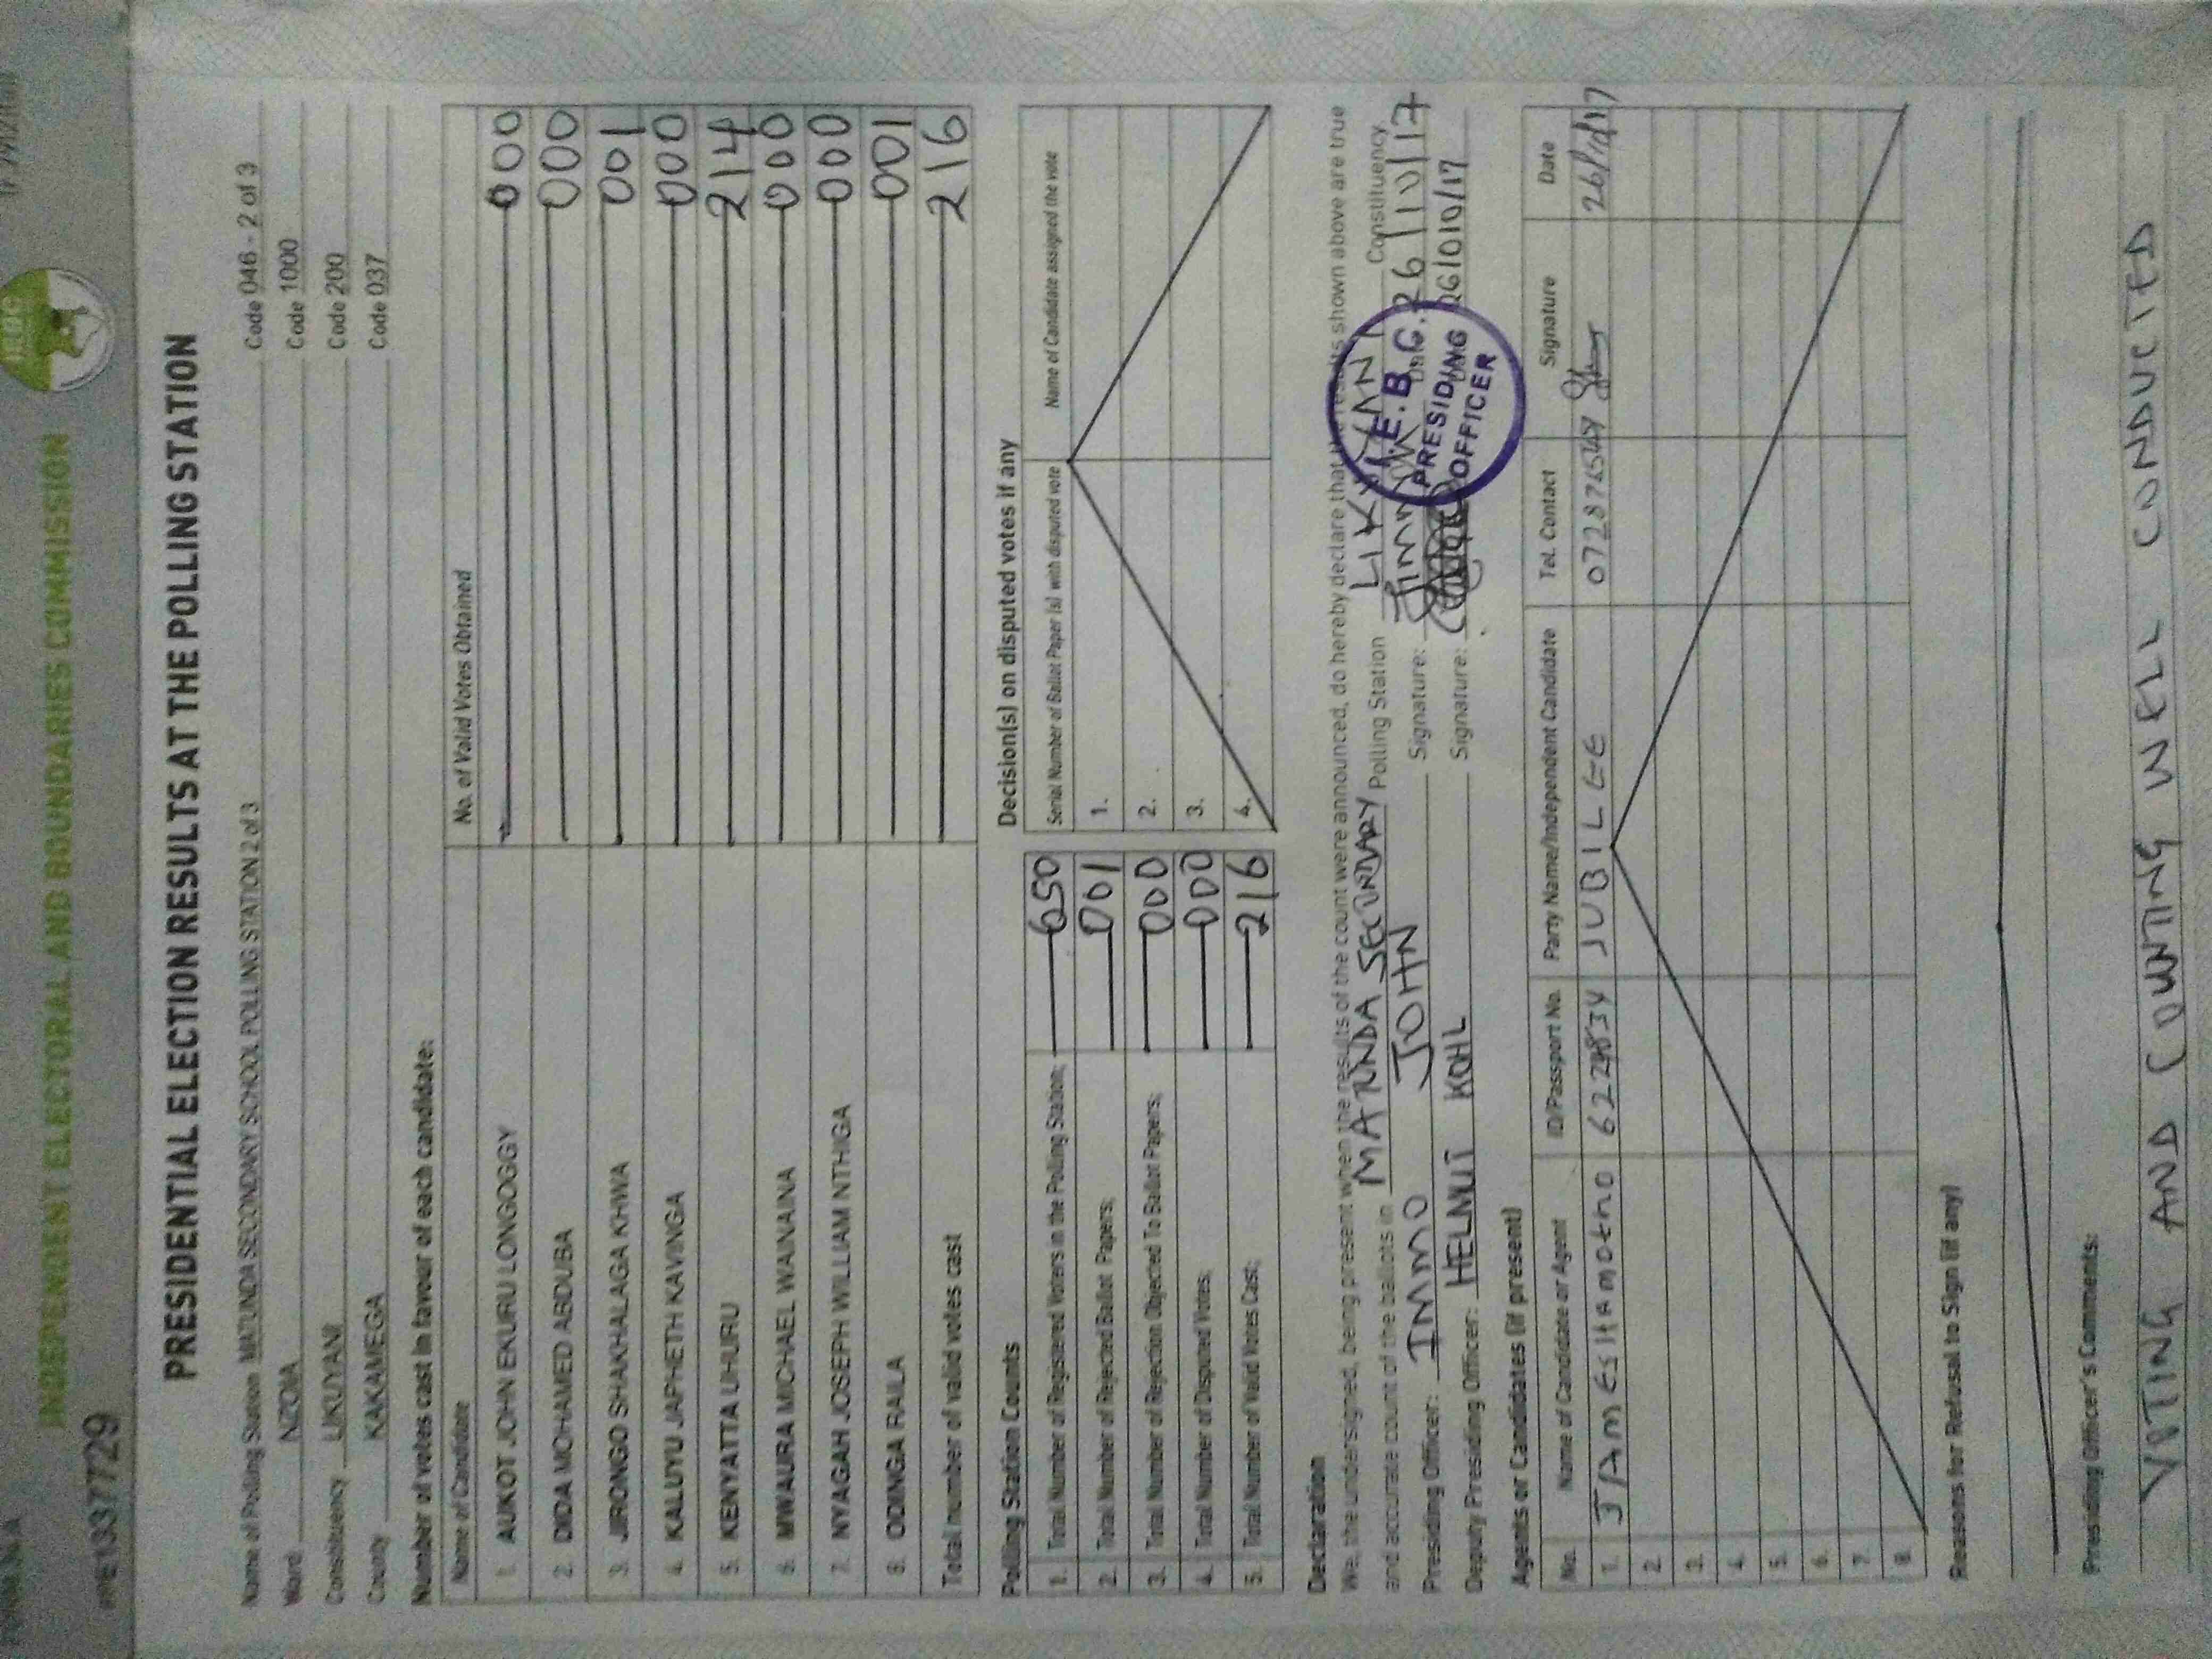 INDEPENDENT ELECTORAL AND BOUNDARIES COMMISSION
IEBC
PRESIDENTIAL ELECTION RESULTS AT THE POLLING STATION
Name of Polling Station MATUNDA SECONDARY SCHOOL POLLING STATION 2 of 3 Code 046 - 2 of 3
Ward NZOIA Code 1000
Constituency LIKUYANI Code 200
County KAKAMEGA Code 037
Number of votes cast in favour of each candidate:
Name of Candidate No. of Valid Votes Obtained
1. AUKOT JOHN EKURU LONGOGGY 000
2. DIDA MOHAMED ABDUBA 000
3. JIRONGO SHAKHALAGA KHWA 001
4. KALUYU JAPHETH KAVINGA 000
5. KENYATTA UHURU 214
6. MWAURA MICHAEL WAINAINA 000
7. NYAGAH JOSEPH WILLIAM NTHIGA 000
8. ODINGA RAILA 001
Total number of valid votes cast 216
Polling Station Counts
1. Total Number of Registered Voters in the Polling Station; 650
2. Total Number of Rejected Ballot Papers; 001
3. Total Number of Rejection Objected To Ballot Papers; 000
4. Total Number of Disputed Votes; 000
5. Total Number of Valid Votes Cast; 216
Decision(s) on disputed votes if any
Serial Number of Ballot Paper (s) with disputed vote Name of Candidate assigned the vote
1.
2.
3.
4.
Declaration
We, the undersigned, being present when the results of the count were announced, do hereby declare that the results shown above are true
and accurate count of the ballots in MATUNDA SECONDARY Polling Station LIKUYANI Constituency
Presiding Officer: IMMO JOHN Signature: 26/10/17
Deputy Presiding Officer: HELMUT KOHL Signature: 26/010/17
I.E.B.C.
PRESIDING
OFFICER
Agents or Candidates (if present)
No. Name of Candidate or Agent ID/Passport No. Party Name/Independent Candidate Tel. Contact Signature Date
1. JAMES ITAMOTHO JUBILEE 26/10/17
2.
3.
4.
5.
6.
7.
8.
Reasons for Refusal to Sign (if any)
Presiding Officer's Comments:
VOTING AND COUNTING WELL CONDUCTED